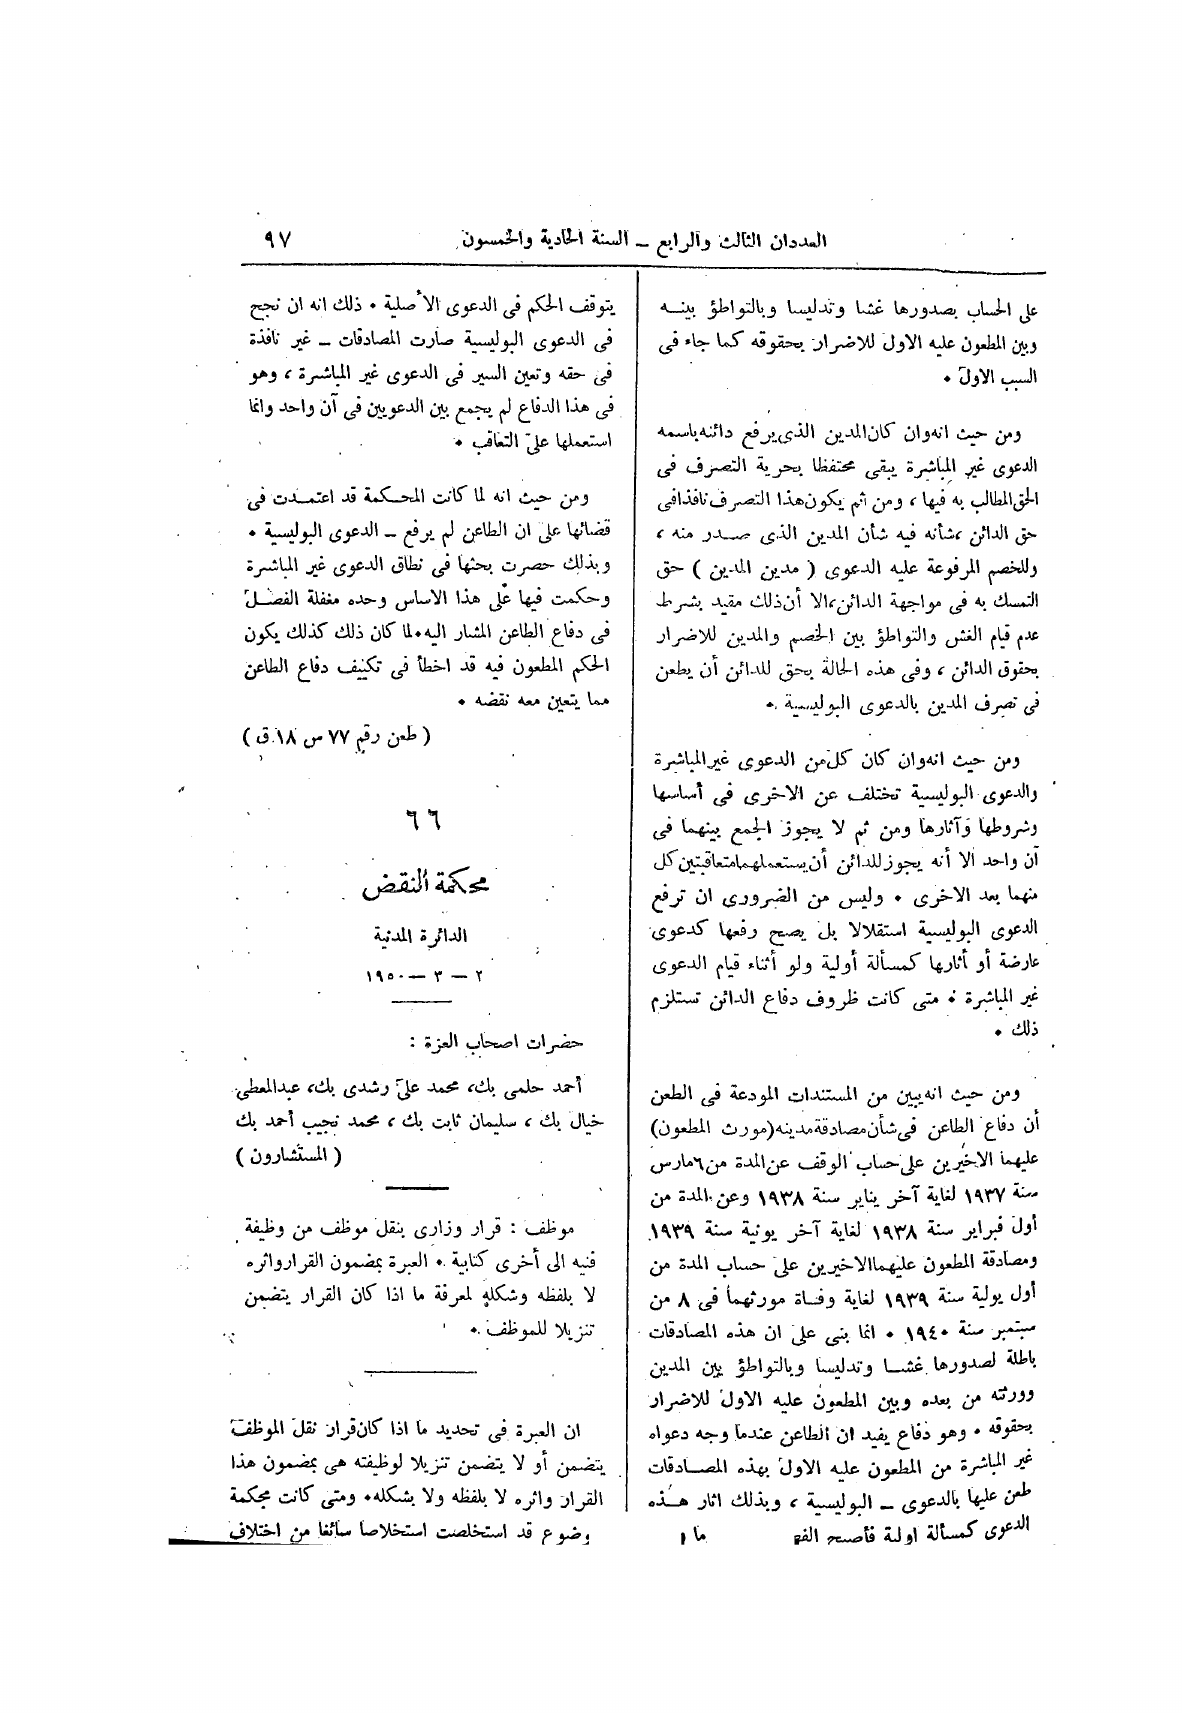 العددان الثالث والرابع ــ السنة الحادية والخمسون ٩٧
على الحساب بصدورها غشا وتدليسا وبالتواطؤ بينه
وبين المطعون عليه الاول للاضرار بحقوقه كما جاء فى
السبب الاول .
ومن حيث انه وان كان المدين الذى يرفع دائنه باسمه
الدعوى غير المباشرة يبقى محتفظا بحرية التصرف فى
الحق المطالب به فيها ، ومن ثم يكون هذا التصرف نافذا فى
حق الدائن ، شأنه فيه شأن المدين الذى صدر منه ،
وللخصم المرفوعة عليه الدعوى ( مدين المدين ) حق
التمسك به فى مواجهة الدائن ، الا أن ذلك مقيد بشرط
عدم قيام الغش والتواطؤ بين الخصم والمدين للاضرار
بحقوق الدائن ، وفى هذه الحالة يحق للدائن أن يطعن
فى تصرف المدين بالدعوى البوليسية .
ومن حيث انه وان كان كل من الدعوى غير المباشرة
والدعوى البوليسية تختلف عن الاخرى فى أساسها
وشروطها وآثارها ومن ثم لا يجوز الجمع بينهما فى
آن واحد الا أنه يجوز للدائن أن يستعملهما متعاقبتين كل
منهما بعد الاخرى . وليس من الضرورى ان ترفع
الدعوى البوليسية استقلالا بل يصح رفعها كدعوى
عارضة أو أثارها كمسألة أولية ولو أثناء قيام الدعوى
غير المباشرة . متى كانت ظروف دفاع الدائن تستلزم
ذلك .
ومن حيث انه يبين من المستندات المودعة فى الطعن
أن دفاع الطاعن فى شأن مصادقة مدينه (مورث المطعون)
عليهما الاخيرين على حساب الوقف عن المدة من ٦ مارس
سنة ١٩٣٧ لغاية آخر يناير سنة ١٩٣٨ وعن المدة من
أول فبراير سنة ١٩٣٨ لغاية آخر يونية سنة ١٩٣٩
ومصادقة المطعون عليهما الاخيرين على حساب المدة من
أول يولية سنة ١٩٣٩ لغاية وفاة مورثهما فى ٨ من
سبتمبر سنة ١٩٤٠ . انما بنى على ان هذه المصادقات
باطلة لصدورها غشا وتدليسا وبالتواطؤ بين المدين
وورثته من بعده وبين المطعون عليه الاول للاضرار
بحقوقه . وهو دفاع يفيد ان الطاعن عندما وجه دعواه
غير المباشرة من المطعون عليه الاول بهذه المصادقات
طعن عليها بالدعوى ــ البوليسية ، وبذلك اثار هذه
الدعوى كمسألة اولية فأصبح ما
يتوقف الحكم فى الدعوى الأصلية . ذلك انه ان نجح
فى الدعوى البوليسية صارت المصادقات ــ غير نافذة
فى حقه وتعين السير فى الدعوى غير المباشرة ، وهو
فى هذا الدفاع لم يجمع بين الدعويين فى آن واحد وانما
استعملها على التعاقب .
ومن حيث انه لما كانت المحكمة قد اعتمدت فى
قضائها على ان الطاعن لم يرفع ــ الدعوى البوليسية .
وبذلك حصرت بحثها فى نطاق الدعوى غير المباشرة
وحكمت فيها على هذا الاساس وحده مغفلة الفصل
فى دفاع الطاعن المشار اليه . لما كان ذلك كذلك يكون
الحكم المطعون فيه قد اخطأ فى تكييف دفاع الطاعن
مما يتعين معه نقضه .
( طعن رقم ٧٧ س ١٨ ق )
٦٦
محكمة النقض
الدائرة المدنية
٢ ــ ٣ ــ ١٩٥٠
حضرات اصحاب العزة :
أحمد حلمى بك، محمد على رشدى بك، عبدالمعطى
خيال بك ، سليمان ثابت بك ، محمد نجيب أحمد بك
( المستشارون )
موظف : قرار وزارى بنقل موظف من وظيفة
فنيه الى أخرى كتابية . العبرة بمضمون القرار واثره
لا بلفظه وشكله لمعرفة ما اذا كان القرار يتضمن
تنزيلا للموظف .
ان العبرة فى تحديد ما اذا كان قرار نقل الموظف
يتضمن أو لا يتضمن تنزيلا لوظيفته هى بمضمون هذا
القرار واثره لا بلفظه ولا بشكله . ومتى كانت محكمة
وضوع قد استخلصت استخلاصا سائغا من اختلاف